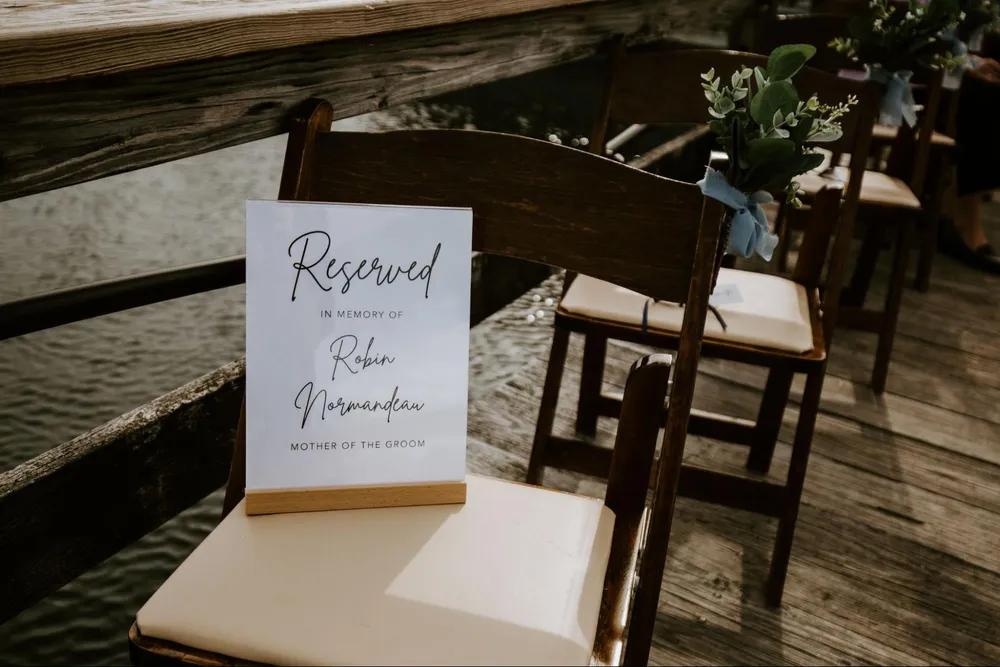 Reserved
IN MEMORY OF
Robin
Normandeau
MOTHER OF THE GROOM